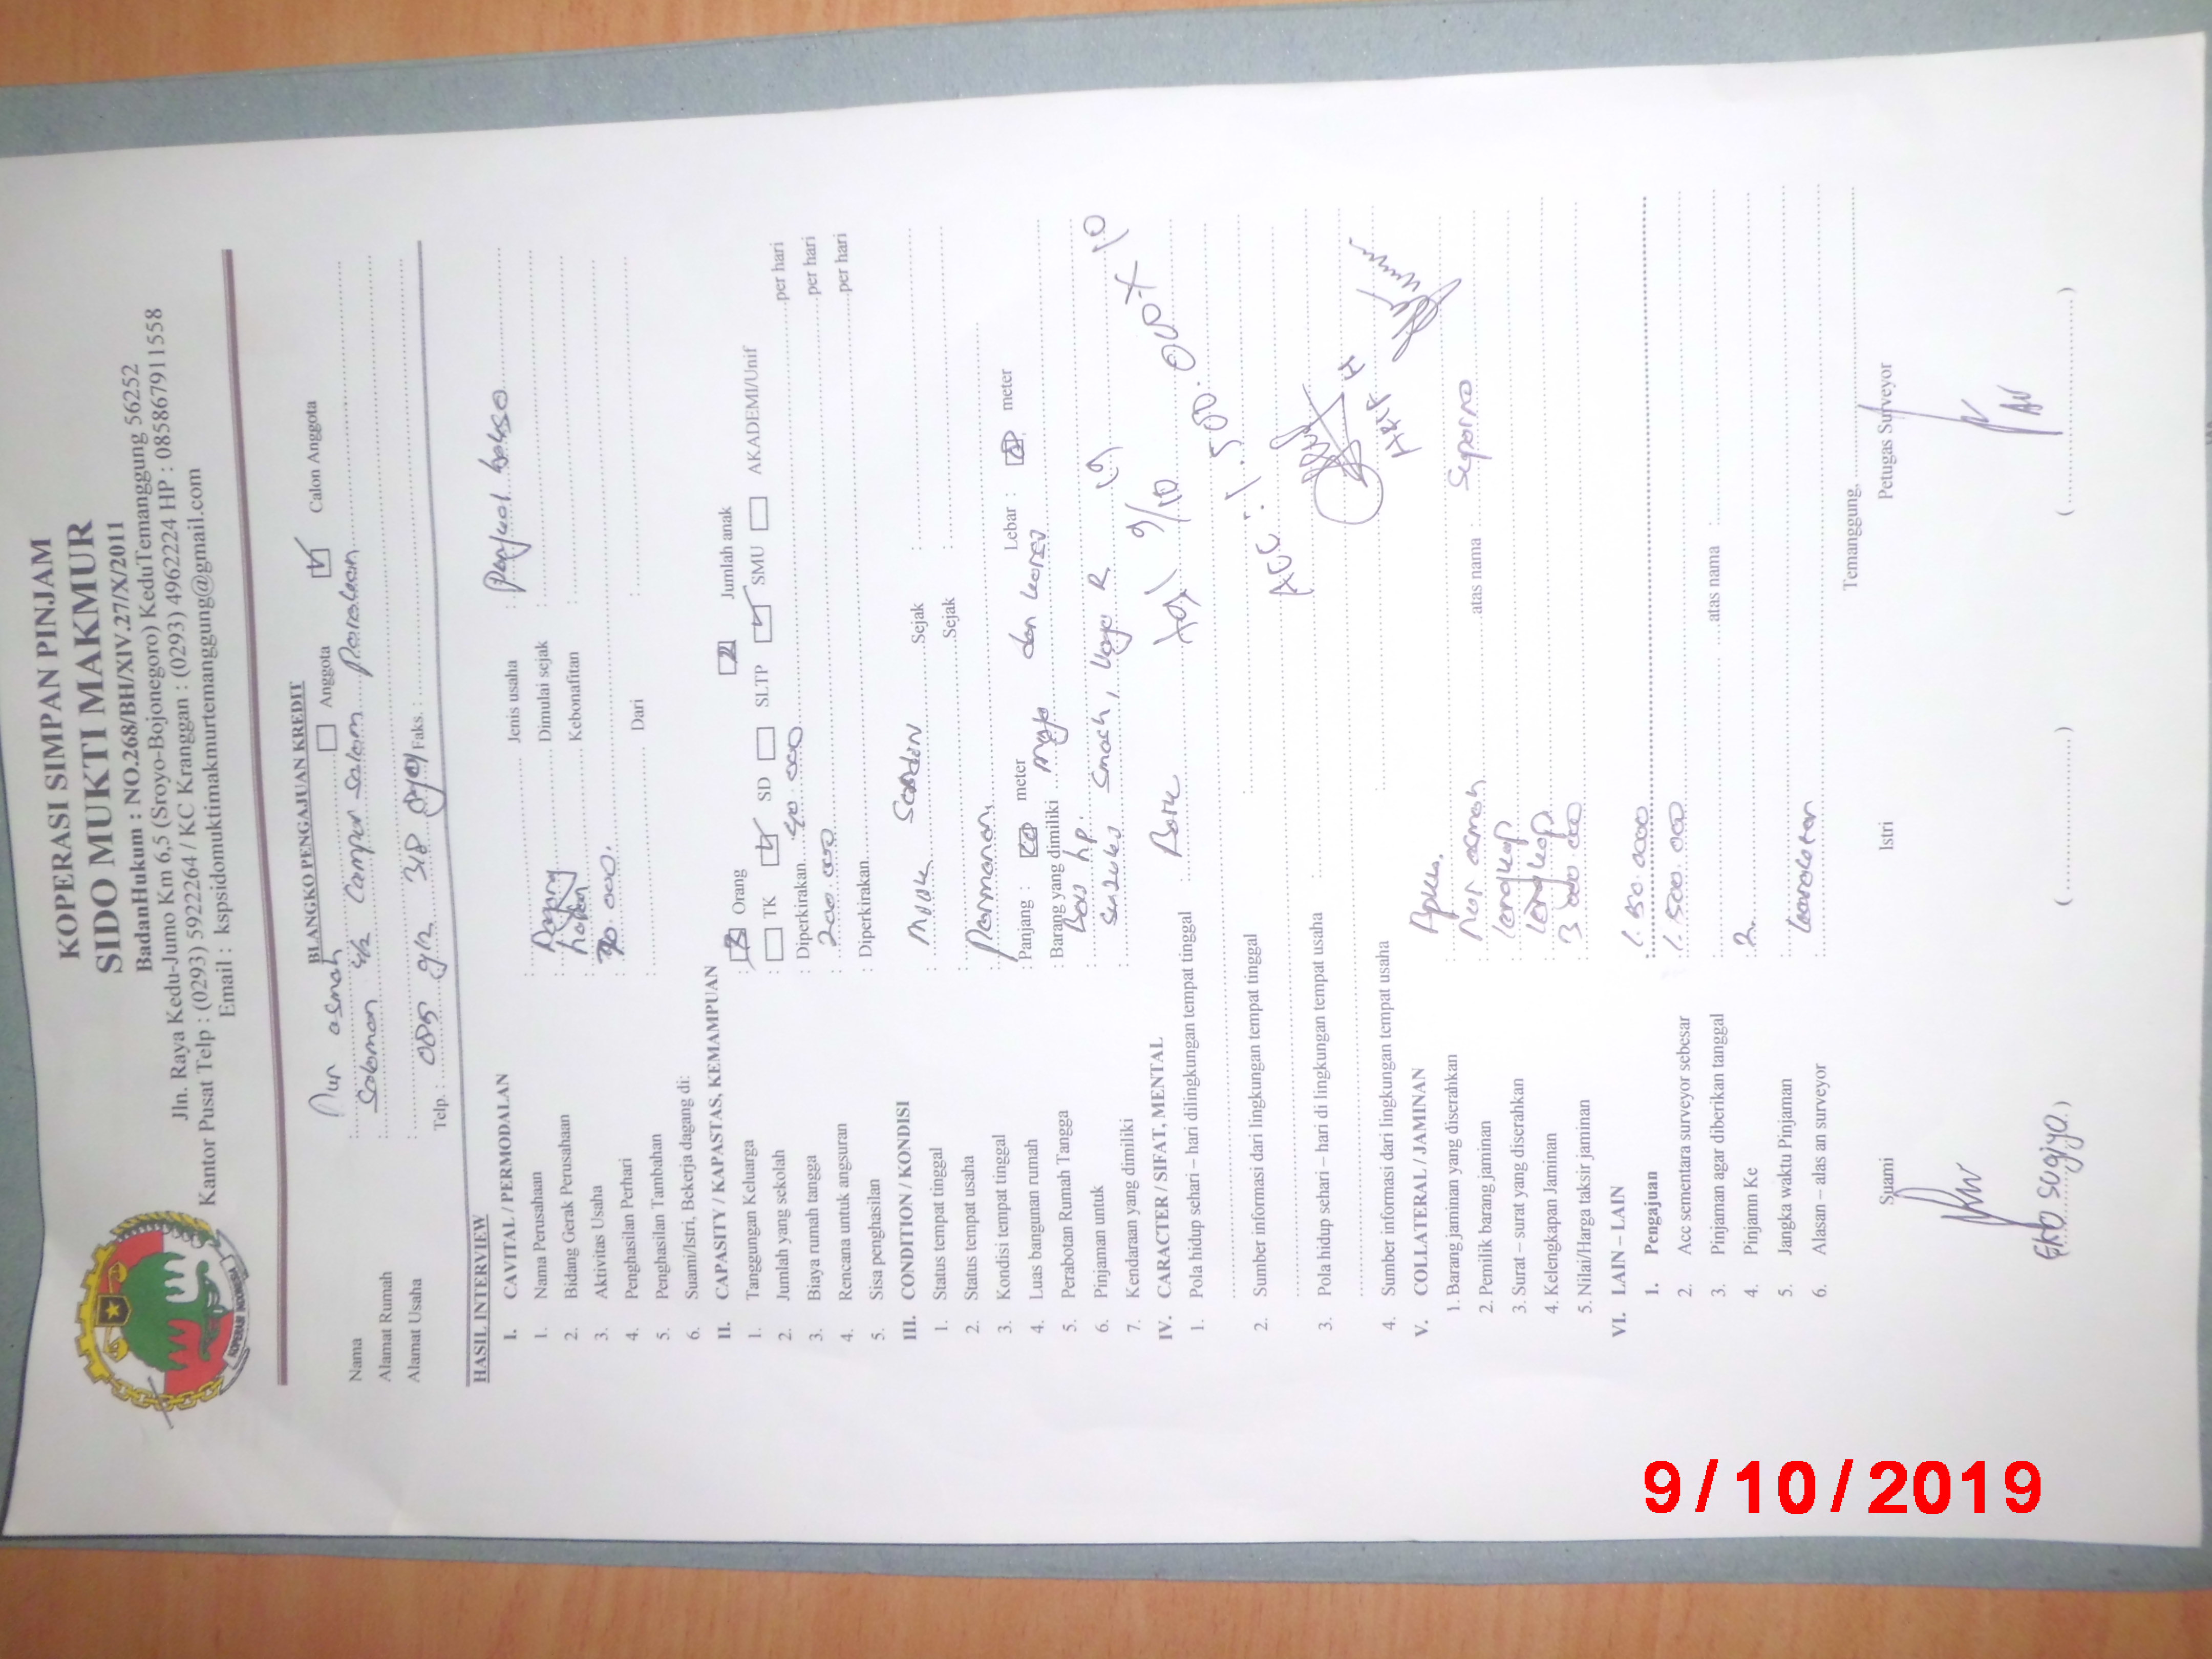 KOPERASI SIMPAN PINJAM
SIDO MUKTI MAKMUR
BadanHukum : NO.268/BH/XIV.27/X/2011
Jln. Raya Kedu-Jumo Km 6,5 (Sroyo-Bojonegoro) KeduTemanggung 56252
Kantor Pusat Telp : (0293) 5922264 / KC Kranggan : (0293) 4962224 HP : 085867911558
Email : kspsidomuktimakmurtemanggung@gmail.com
KOPERASI INDONESIA
BLANGKO PENGAJUAN KREDIT
Anggota Calon Anggota
Nama : Nur asmah
Alamat Rumah : Salaman Campur Salam Parakan
Alamat Usaha :
Telp. : 085 318 Faks. :
HASIL INTERVIEW
I. CAVITAL / PERMODALAN
1. Nama Perusahaan : Jenis usaha : Penjual bakso
2. Bidang Gerak Perusahaan : Dagang Dimulai sejak :
3. Aktivitas Usaha : harian Kebonafitan :
4. Penghasilan Perhari : 70.000.
5. Penghasilan Tambahan : Dari :
6. Suami/Istri, Bekerja dagang di:
II. CAPASITY / KAPASTAS, KEMAMPUAN
1. Tanggungan Keluarga : 3 Orang 2 Jumlah anak
2. Jumlah yang sekolah : TK SD SLTP SMU AKADEMI/Unif
3. Biaya rumah tangga : Diperkirakan 40.000 per hari
4. Rencana untuk angsuran : 200.000 per hari
5. Sisa penghasilan : Diperkirakan per hari
III. CONDITION / KONDISI
1. Status tempat tinggal : Milik Sendiri Sejak :
2. Status tempat usaha : Sejak :
3. Kondisi tempat tinggal : Permanen
4. Luas bangunan rumah : Panjang : meter Lebar : meter
5. Perabotan Rumah Tangga : Barang yang dimiliki Meja dan kursi
6. Pinjaman untuk :
7. Kendaraan yang dimiliki : Suzuki Smash, Vega R
IV. CARACTER / SIFAT, MENTAL
1. Pola hidup sehari – hari dilingkungan tempat tinggal : Baik
9/10
2. Sumber informasi dari lingkungan tempat tinggal :
ACC : 1.500.000 x 10
3. Pola hidup sehari – hari di lingkungan tempat usaha :
4. Sumber informasi dari lingkungan tempat usaha :
V. COLLATERAL / JAMINAN
1. Barang jaminan yang diserahkan
2. Pemilik barang jaminan : Nur asmah atas nama : Suparno
3. Surat – surat yang diserahkan : lengkap
4. Kelengkapan Jaminan : lengkap
5. Nilai/Harga taksir jaminan : 3 000 000
VI. LAIN – LAIN
1. Pengajuan :
2. Acc sementara surveyor sebesar : 1.500.000
3. Pinjaman agar diberikan tanggal : atas nama
4. Pinjamn Ke : 2
5. Jangka waktu Pinjaman :
6. Alasan – alas an surveyor :
Temanggung,
Suami Istri Petugas Surveyor
Eko Sugiyo )
( )
( )
9/10/2019